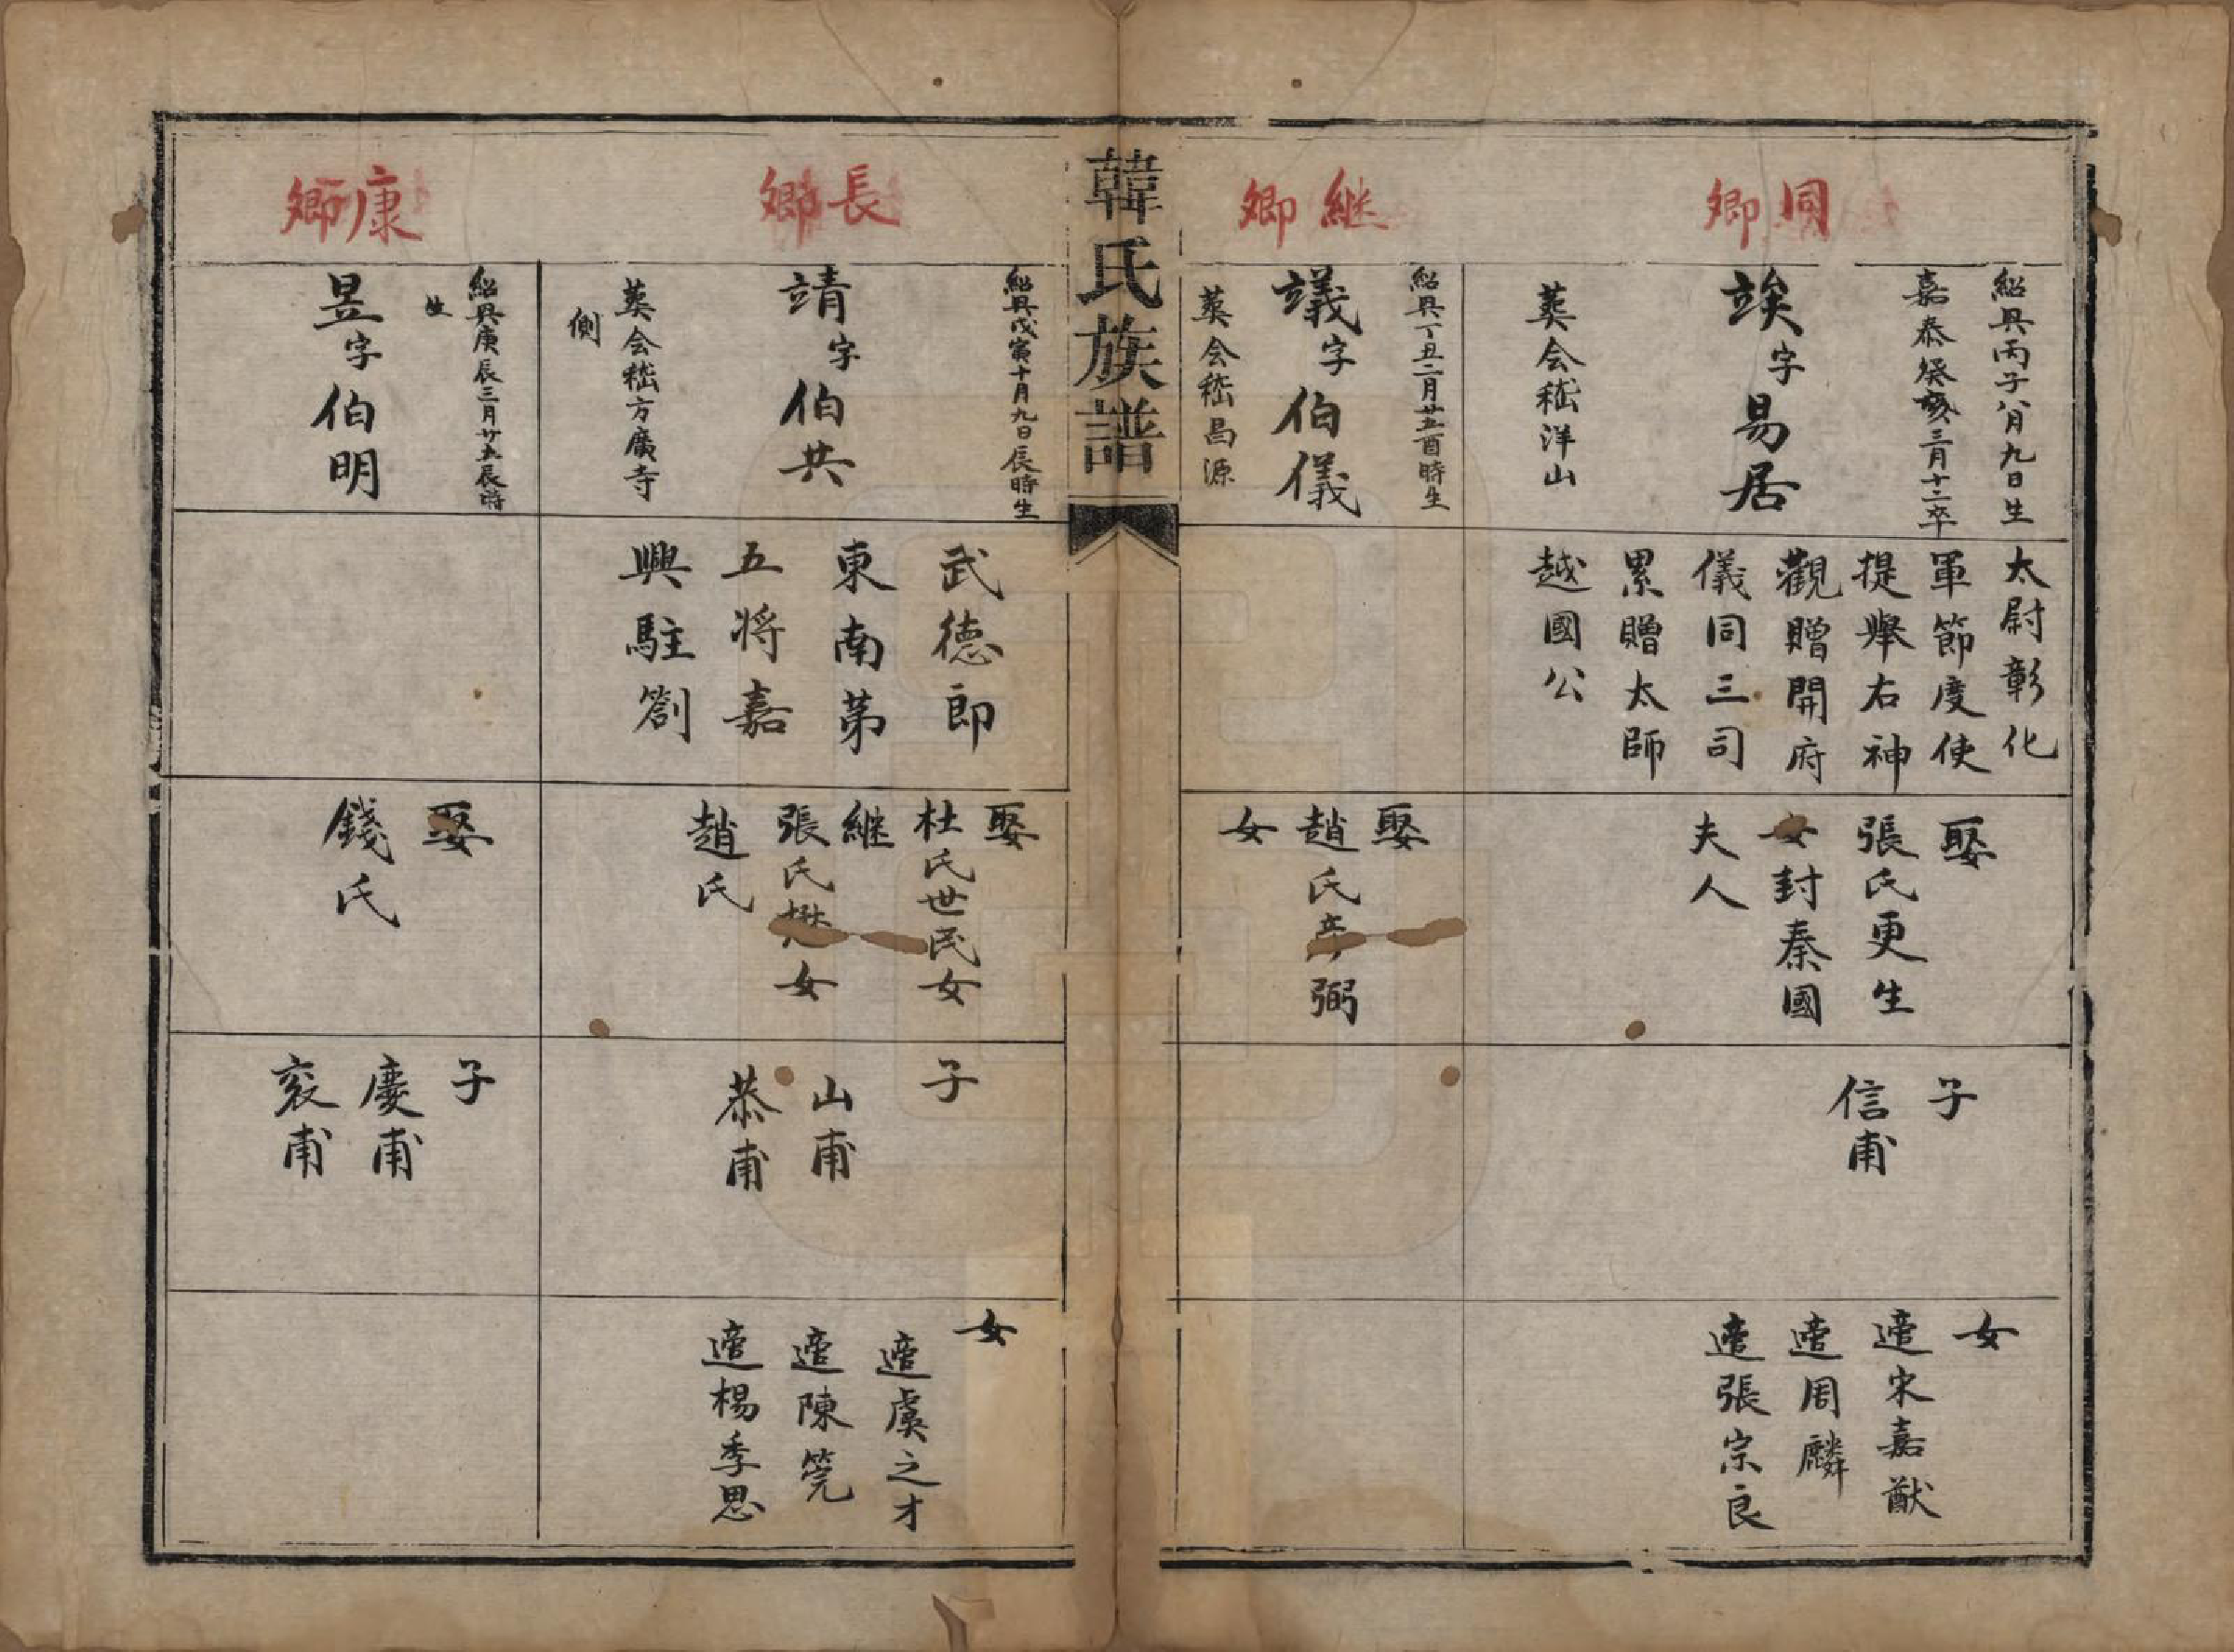 同卿
紹興丙子八月九日生
嘉泰癸亥三月十二卒
竢字易居
葬会嵇洋山
太尉彰化
軍節度使
提舉右神
觀贈開府
儀同三司
累贈太師
越國公
娶
張氏更生
女封秦國
夫人
子
信甫
女
適宋嘉猷
適周麟
適張宗良
継卿
紹興丁丑二月廿五酉時生
竩字伯儀
葬会嵇昌源
娶
趙氏彥弼
女
韓氏族譜
長卿
紹興戊寅十月九日辰時生
靖字伯共
葬会嵇方廣寺
側
武德郎
東南苐
五將嘉
興駐劄
娶
杜氏世民女
継
張氏懋女
趙氏
子
山甫
恭甫
女
適虞之才
適陳筦
適楊季思
康卿
紹興庚辰三月廿五辰時
生
昱字伯明
娶
錢氏
子
慶甫
衮甫